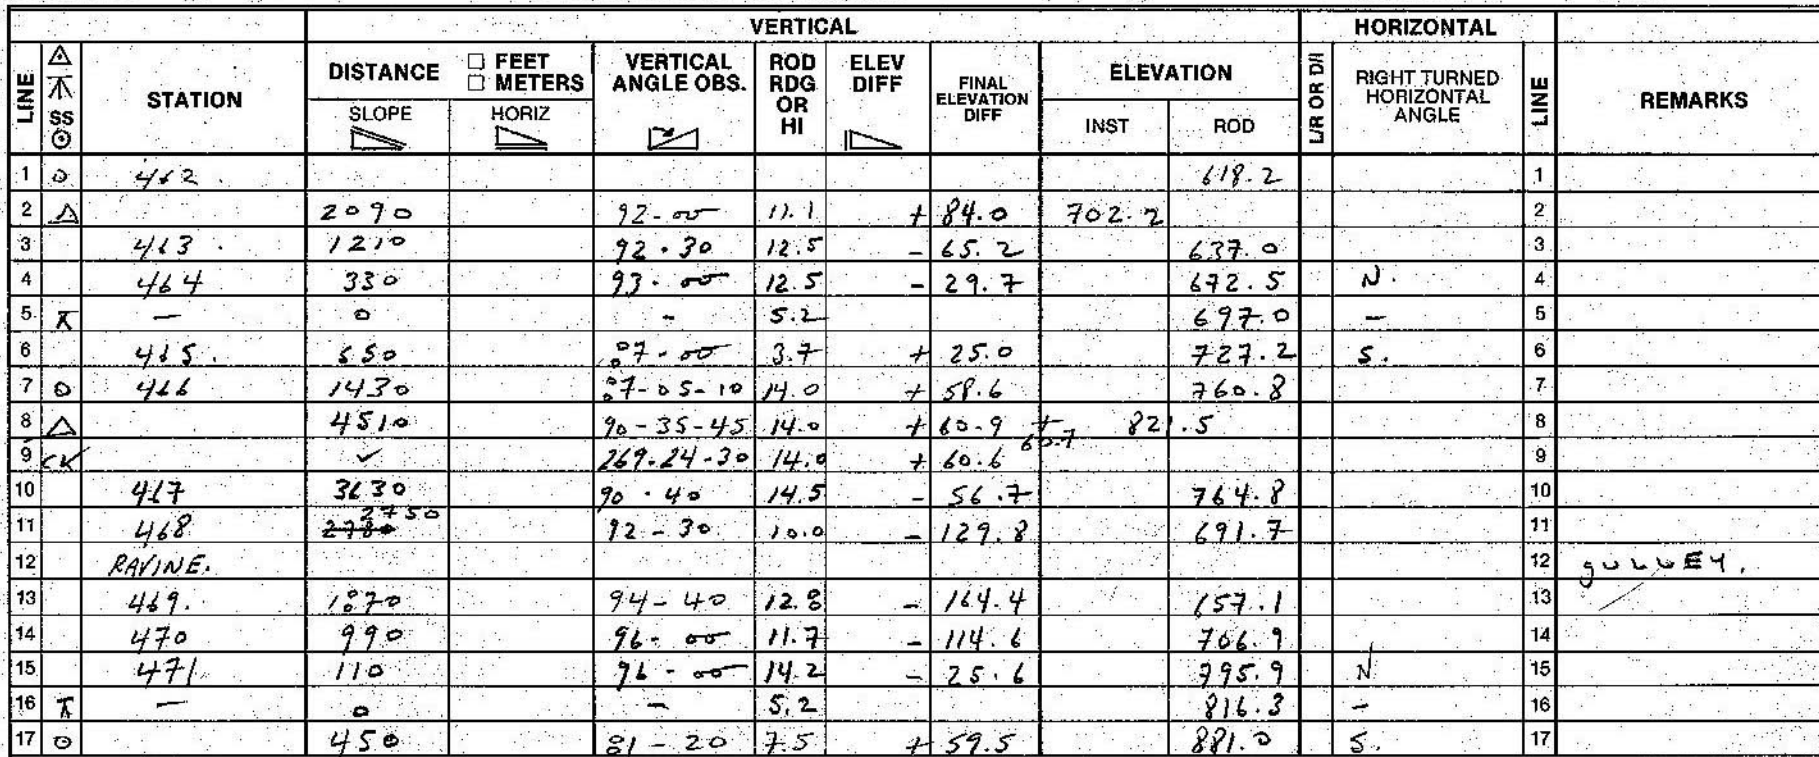 VERTICAL HORIZONTAL
LINE SS STATION DISTANCE □ FEET □ METERS VERTICAL ANGLE OBS. ROD RDG OR HI ELEV DIFF FINAL ELEVATION DIFF ELEVATION L/R OR D/I RIGHT TURNED HORIZONTAL ANGLE LINE REMARKS
SLOPE HORIZ INST ROD
1 462. 618.2 1
2 2090 92-00 11.1 + 84.0 702.2 2
3 463. 1210 92.30 12.5 - 65.2 637.0 3
4 464 330 93.00 12.5 - 29.7 672.5 N. 4
5 — 0 - 5.2 697.0 — 5
6 465. 550 87-00 3.7 + 25.0 727.2 S. 6
7 466 1430 87-05-10 14.0 + 58.6 760.8 7
8 4510 90-35-45 14.0 + 60.9 + 60.7 821.5 8
9 CK ✓ 269.24-30 14.0 + 60.6 9
10 467 3630 90.40 14.5 - 56.7 764.8 10
11 468 2780 2750 92-30 10.0 - 129.8 691.7 11
12 RAVINE. 12 GULLEY.
13 469. 1870 94-40 12.8 - 164.4 657.1 13
14 470 990 96-00 11.7 - 114.6 706.9 14
15 471 110 96-00 14.2 - 25.6 795.9 N 15
16 — 0 — 5.2 816.3 - 16
17 450 81-20 7.5 + 59.5 881.0 S. 17